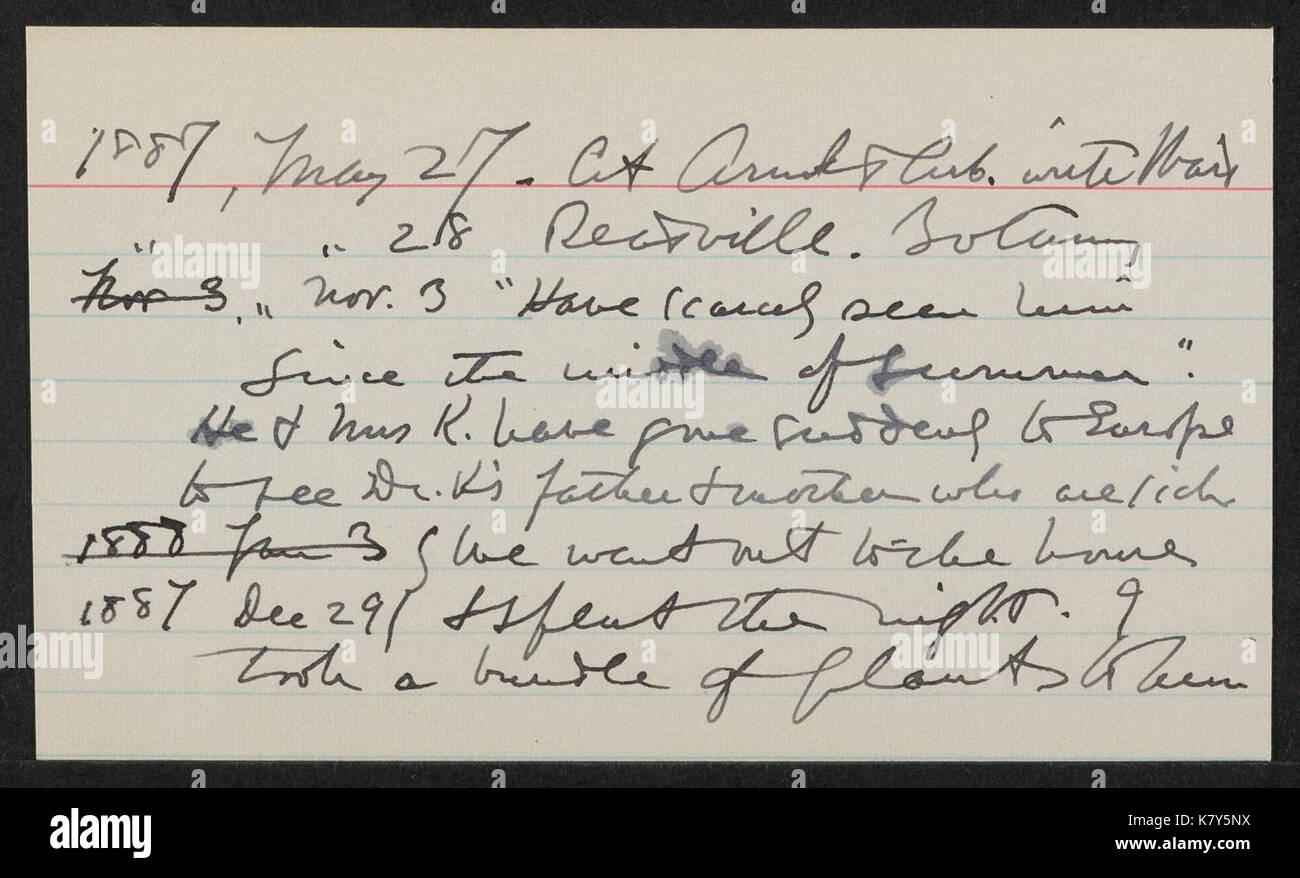 1887, May 27. At Arnold Arb. with
" " 28 Readville. Botany
Nov 3, " Nov. 3 "Have scarcely seen him
since the middle of summer".
He & Mrs K. have gone suddenly to Europe
to see Dr. K's father & mother who are sick
1888 Jan 3 { We went out to the house
1887 Dec 29 { & spent the night. I
took a bundle of plants to him
alamy
Image ID: K7Y5NX
www.alamy.com